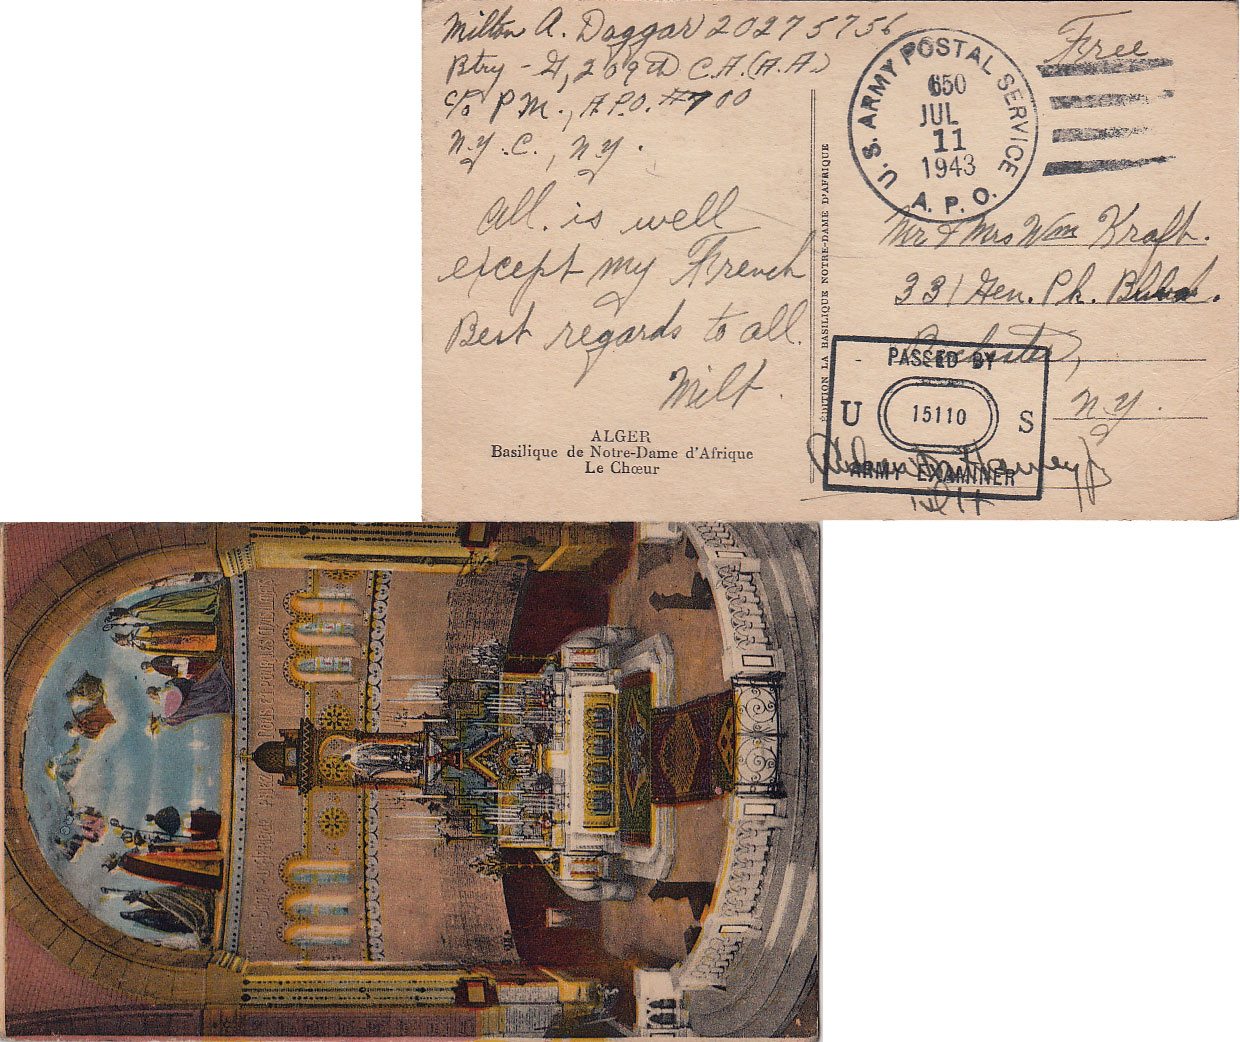 Milton A. Daggar 20275756
Btry - G, 209th C.A. (A.A.)
c/o P.M., A.P.O. #700
N.Y.C., N.Y.
All is well
except my French
Best regards to all.
Milt.
ALGER
Basilique de Notre-Dame d'Afrique
Le Chœur
ÉDITION LA BASILIQUE NOTRE-DAME D'AFRIQUE
Free
U.S. ARMY POSTAL SERVICE
650
JUL
11
1943
A.P.O.
Mr & Mrs Wm Kraft.
331 Gen. Pk. Blvd.
Rochester,
N.Y.
PASSED BY
U 15110 S
ARMY EXAMINER